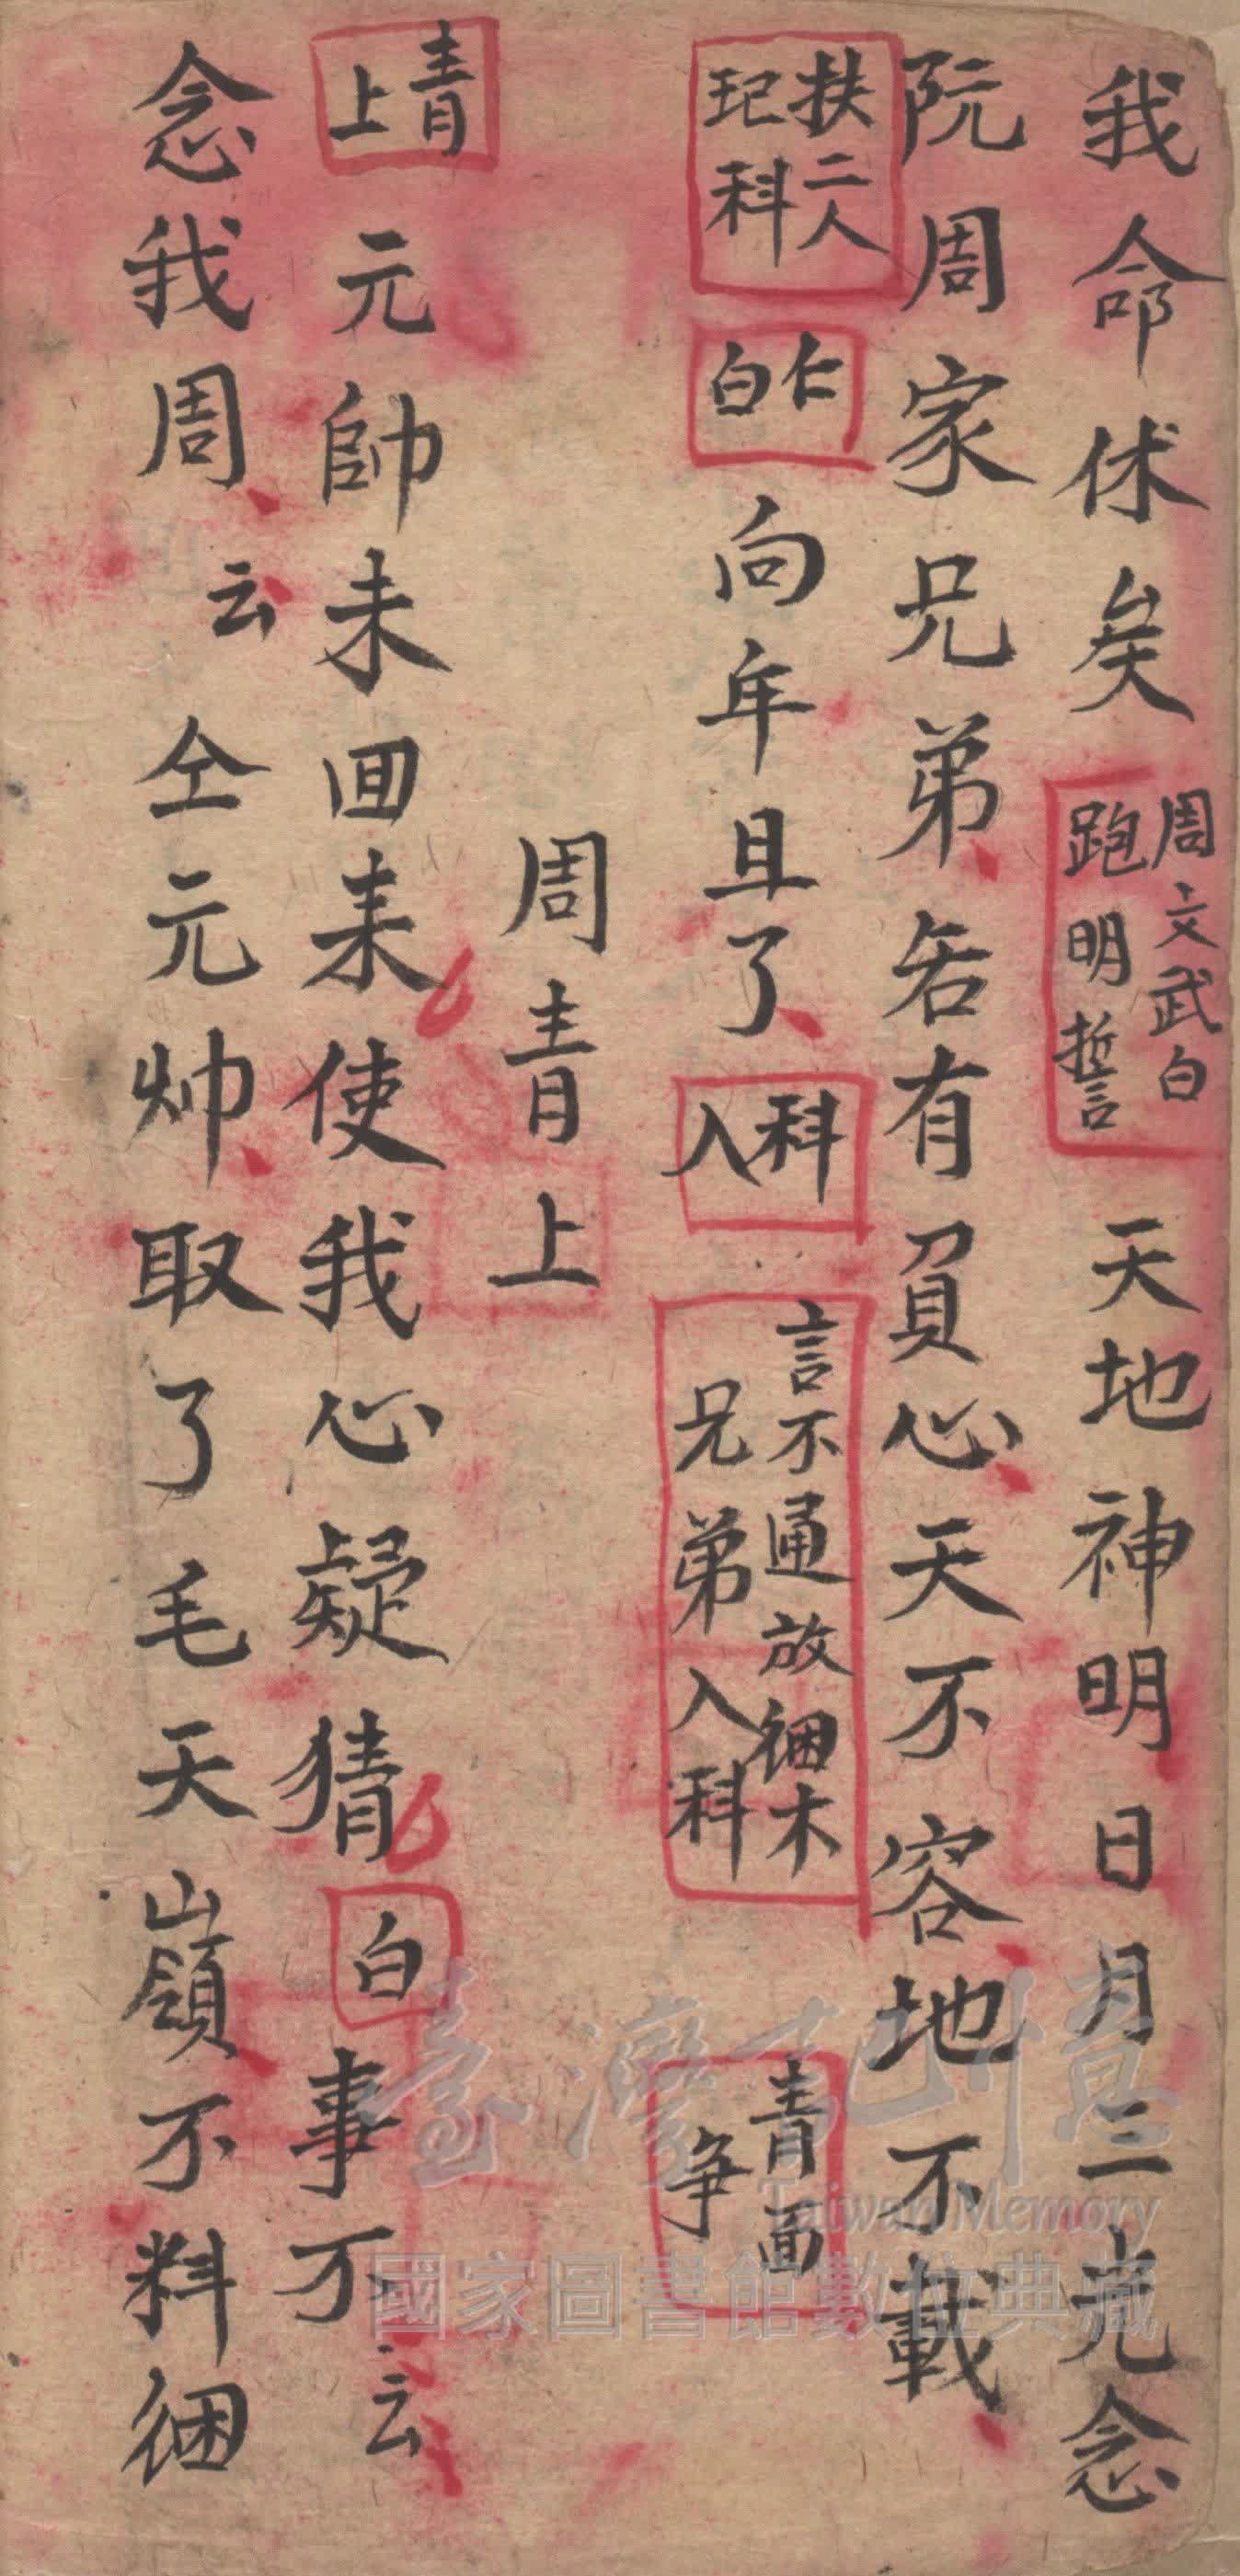 我命休矣 周文武白跑明誓 天地神明日月三光念
阮周家兄弟若有負心天不容地不載
扶二人𭓇科 仁白 向年且了 科入 言不通放捆木兄弟入科 青面争
周青上
青上 元帥未回耒使我心疑猜 白 事不云
念我周云仝元帅取了毛天嶺不料捆
臺灣記憶
Taiwan Memory
國家圖書館數位典藏